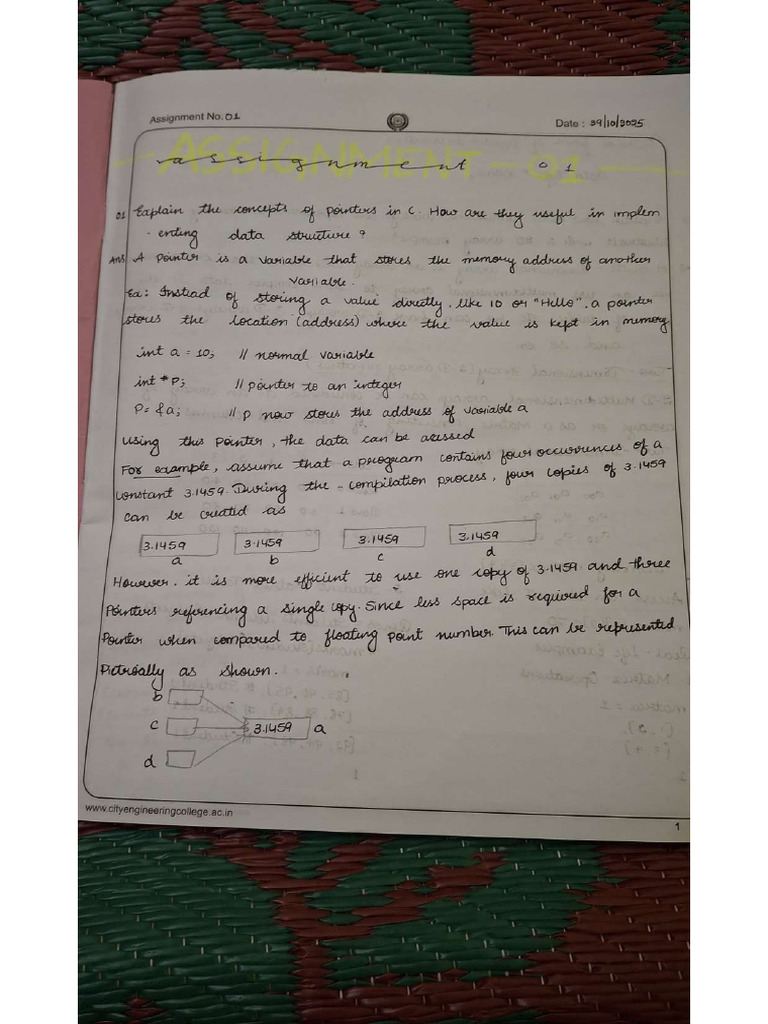 Assignment No. 01
Date : 29/10/2025
ASSIGNMENT - 01
assignment 01
01 Explain the concepts of pointers in C. How are they useful in implem
- enting data structure?
Ans A pointer is a variable that stores the memory address of another
variable.
Ex: Instiad of storing a value directly. like 10 or "Hello". a pointer
stores the location (address) where the value is kept in memory
int a = 10; // normal variable
int *P; // pointer to an integer
P= &a; // p now stores the address of variable a
using this pointer, the data can be acessed
For example, assume that a program contains four occurrences of a
constant 3.1459. During the - compilation process, four copies of 3.1459
can be created as
3.1459 3.1459 3.1459 3.1459
a b c d
However. it is more efficient to use one copy of 3.1459 and three
Pointers referencing a single copy. Since less space is required for a
Pointer when compared to floating point number. This can be represented
Pictreially as shown.
b
c 3.1459 a
d
www.cityengineeringcollege.ac.in
1